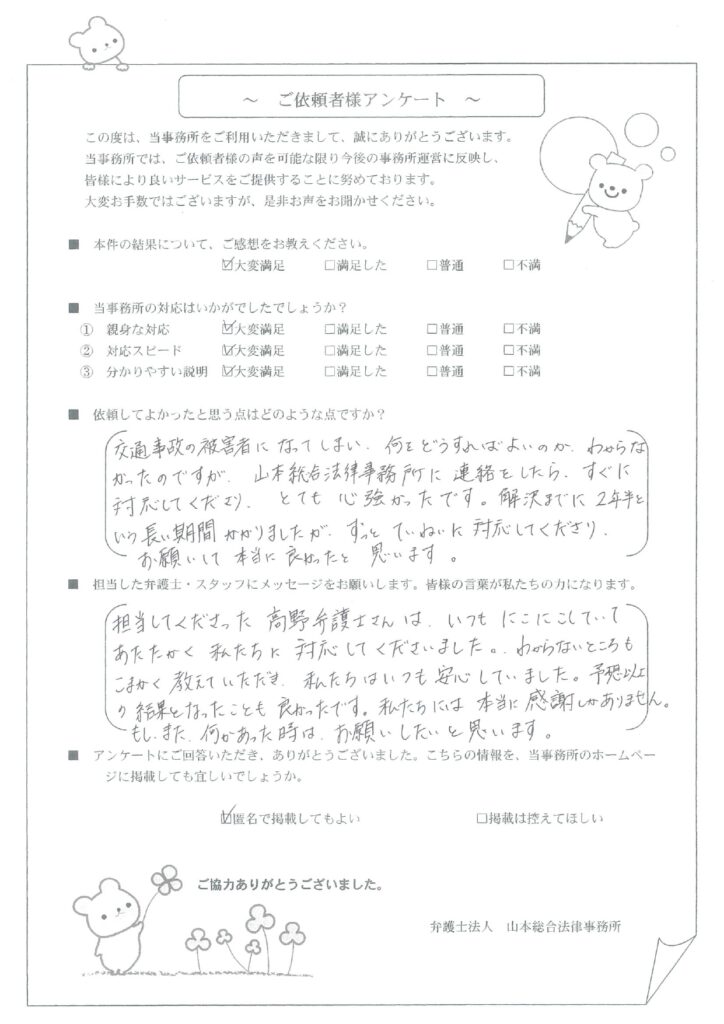 ～　ご依頼者様アンケート　～
この度は、当事務所をご利用いただきまして、誠にありがとうございます。
当事務所では、ご依頼者様の声を可能な限り今後の事務所運営に反映し、
皆様により良いサービスをご提供することに努めております。
大変お手数ではございますが、是非お声をお聞かせください。
■　本件の結果について、ご感想をお教えください。
☑大変満足　□満足した　□普通　□不満
■　当事務所の対応はいかがでしたでしょうか？
①　親身な対応　☑大変満足　□満足した　□普通　□不満
②　対応スピード　☑大変満足　□満足した　□普通　□不満
③　分かりやすい説明　☑大変満足　□満足した　□普通　□不満
■　依頼してよかったと思う点はどのような点ですか？
交通事故の被害者になってしまい、何をどうすればよいのか、わからな
かったのですが、山本総合法律事務所に連絡をしたら、すぐに
対応してくださり、とても心強かったです。解決までに2年半と
いう長い期間かかりましたが、ずっとていねいに対応してくださり、
お願いして本当に良かったと思います。
■　担当した弁護士・スタッフにメッセージをお願いします。皆様の言葉が私たちの力になります。
担当してくださった高野弁護士さんは、いつもにこにこしていて
あたたかく私たちに対応してくださいました。わからないところも
こまかく教えていただき、私たちはいつも安心していました。予想以上
の結果となったことも良かったです。私たちには本当に感謝しかありません。
もし、また、何かあった時は、お願いしたいと思います。
■　アンケートにご回答いただき、ありがとうございました。こちらの情報を、当事務所のホームペー
ジに掲載しても宜しいでしょうか。
☑匿名で掲載してもよい　□掲載は控えてほしい
ご協力ありがとうございました。
弁護士法人　山本総合法律事務所